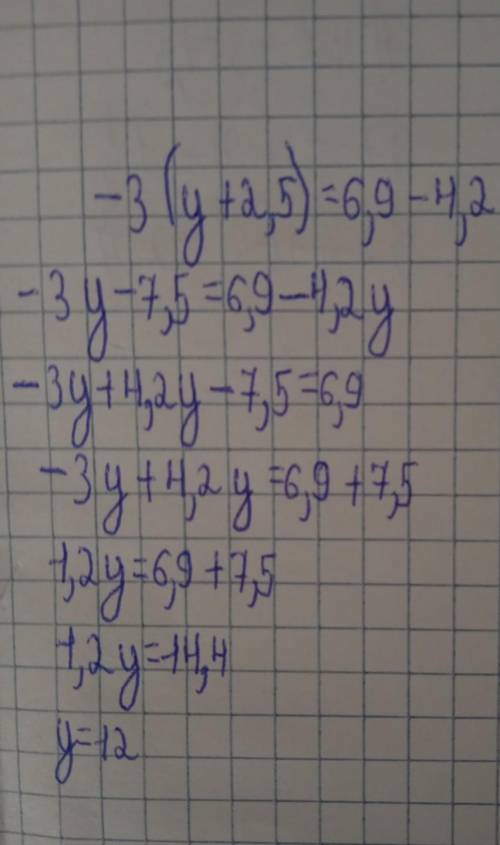 -3(y+2,5)=6,9-4,2
-3y-7,5=6,9-4,2y
-3y+4,2y-7,5=6,9
-3y+4,2y=6,9+7,5
1,2y=6,9+7,5
1,2y=14,4
y=12